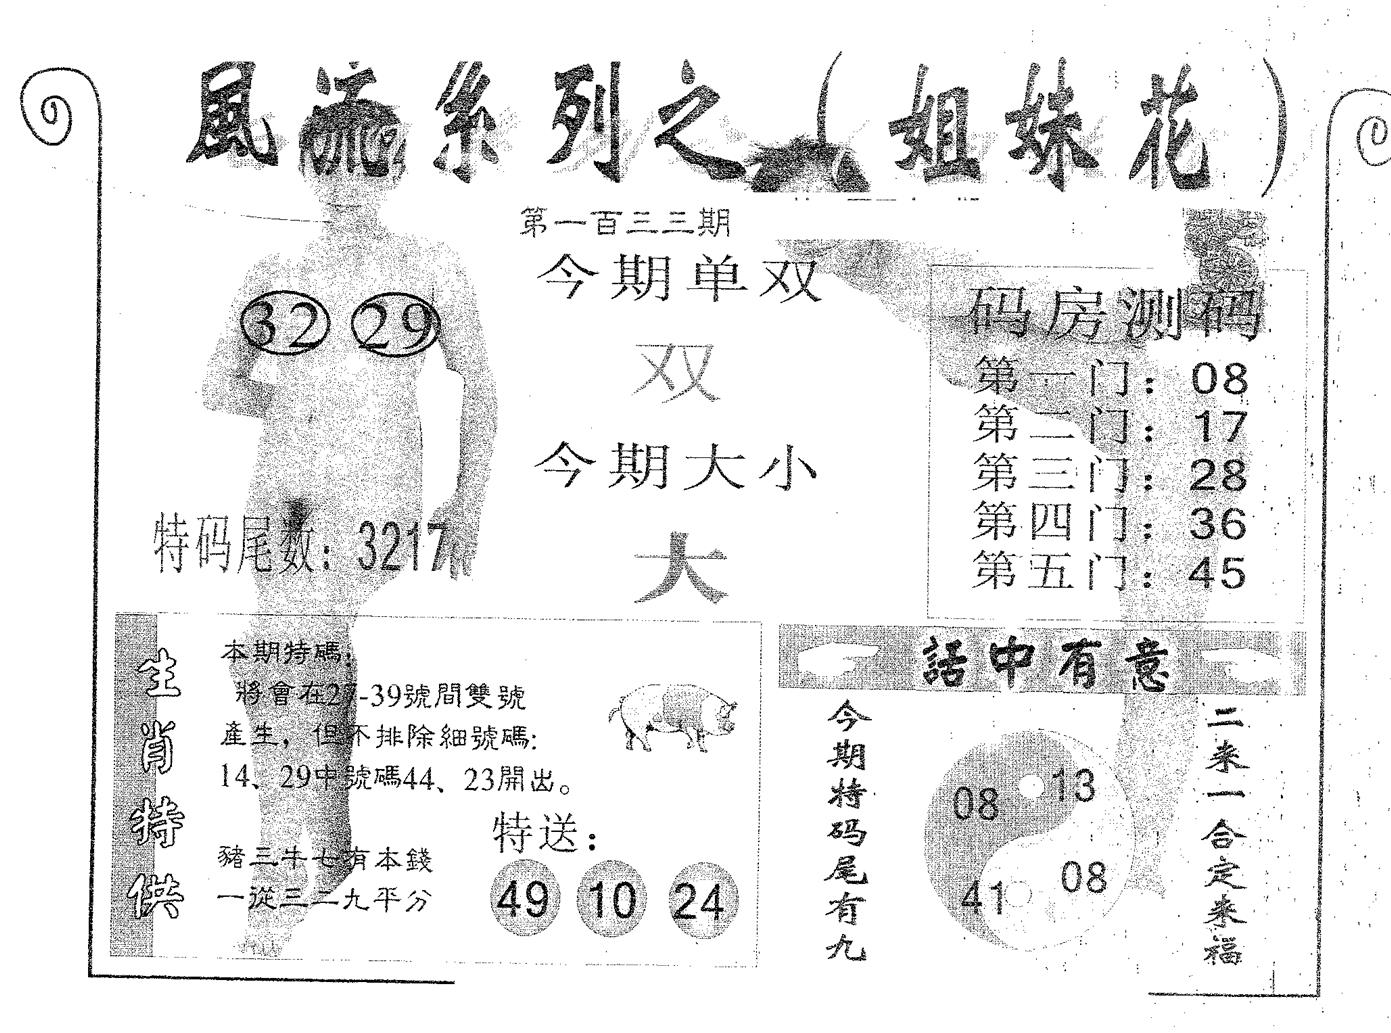 風流系列之（姐妹花）
第一百三三期
今期单双
双
今期大小
大
32 29
特码尾数：3217
码房测码
第一门：08
第二门：17
第三门：28
第四门：36
第五门：45
生肖特供
本期特碼：
將會在27-39號間雙號
產生，但不排除細號碼：
14、29中號碼44、23開出。
豬三牛七有本錢
一從三二九平分
特送：
49 10 24
話中有意
今期特码尾有九
08 13
41 08
二来一合定来福